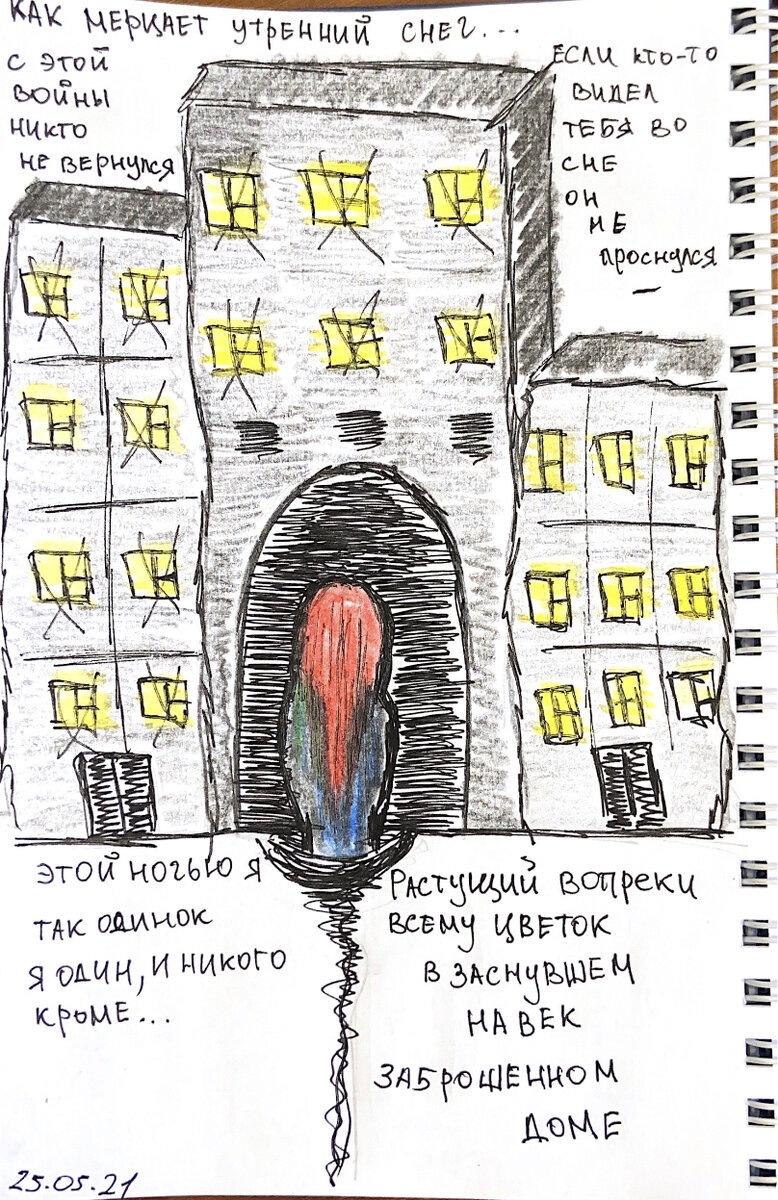 КАК МЕРЦАЕТ УТРЕННИЙ СНЕГ...
С ЭТОЙ
ВОЙНЫ
НИКТО
НЕ ВЕРНУЛСЯ
ЕСЛИ КТО-ТО
ВИДЕЛ
ТЕБЯ ВО
СНЕ
ОН
НЕ
ПРОСНУЛСЯ
ЭТОЙ НОЧЬЮ Я
ТАК ОДИНОК
Я ОДИН, И НИКОГО
КРОМЕ...
РАСТУЩИЙ ВОПРЕКИ
ВСЕМУ ЦВЕТОК
В ЗАСНУВШЕМ
НА ВЕК
ЗАБРОШЕННОМ
ДОМЕ
25.05.21